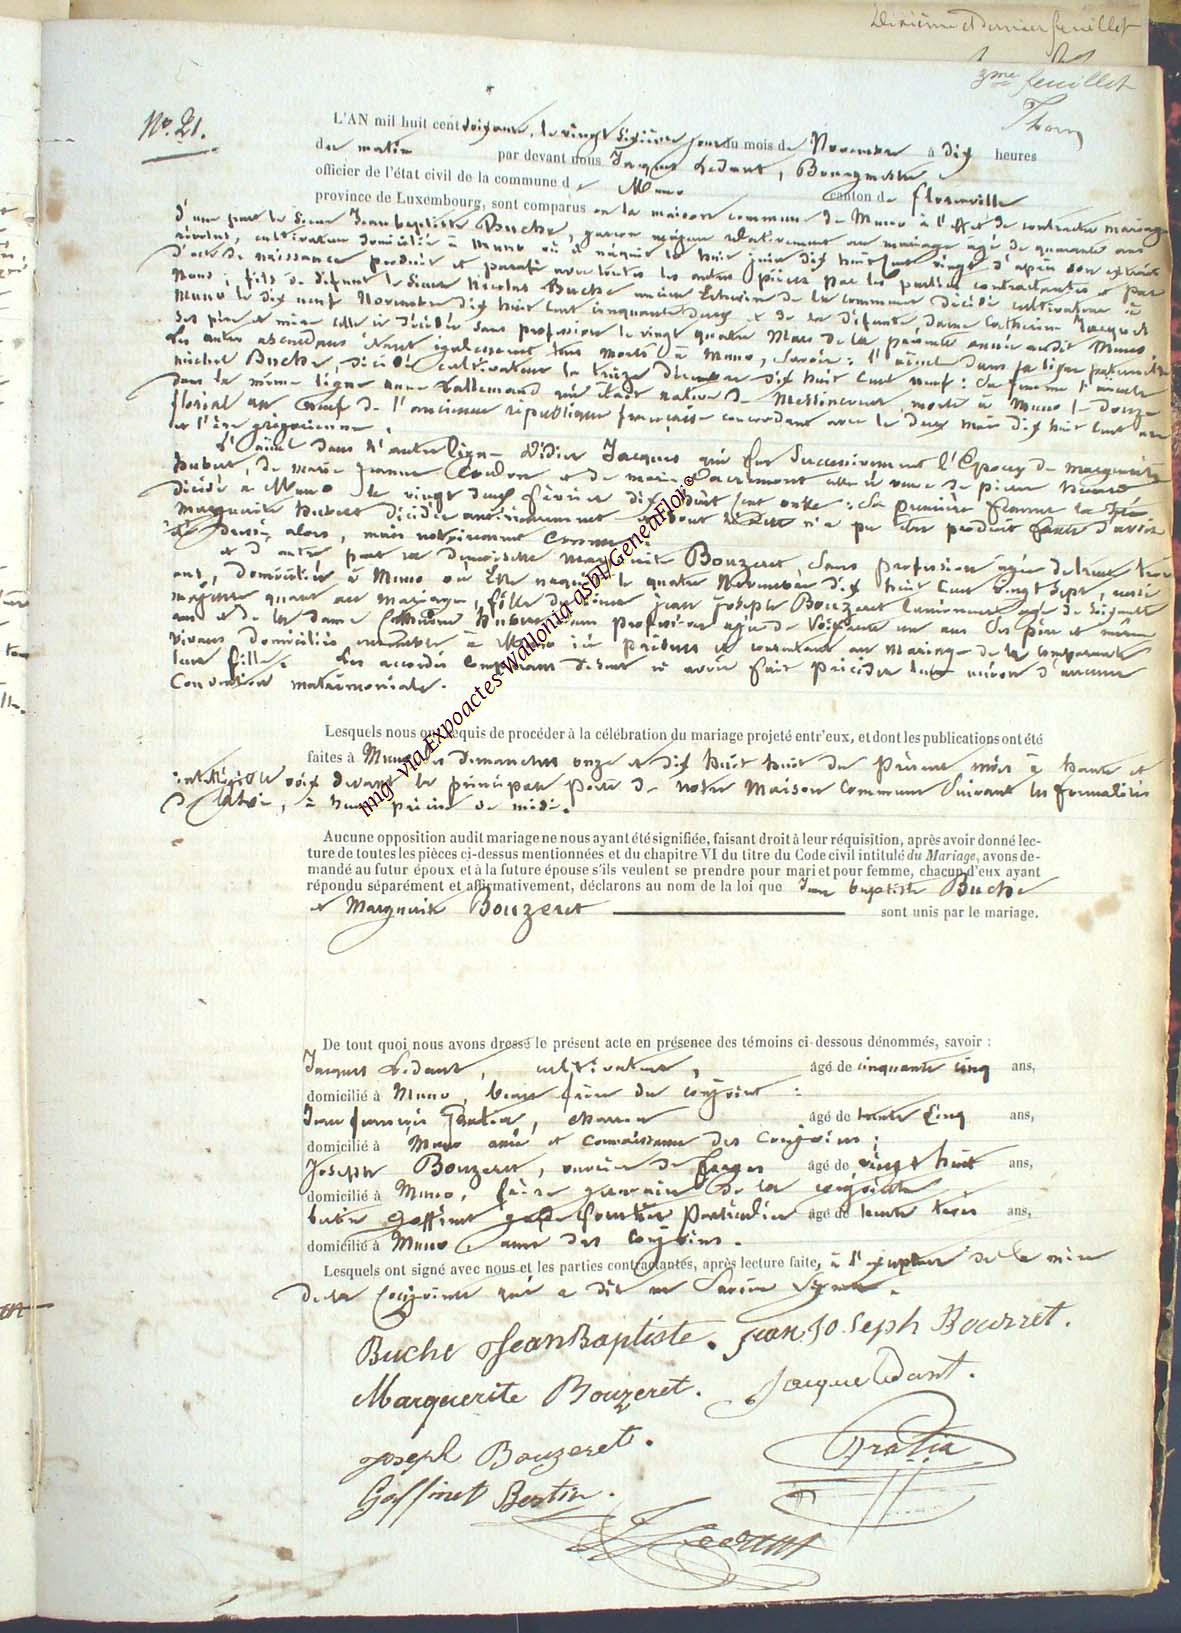 Dixième et Dernier feuillet
3me feuillet
No. 21.
L'AN mil huit cent soixante, le vingt sixième jour du mois de Novembre à dix heures
du matin par devant nous Jacques Ledant, Bourgmestre
officier de l'état civil de la commune de Muno canton de florenville
province de Luxembourg, sont comparus en la maison commune de Muno à l'effet de contracter mariage
d'une part le Sieur Jean baptiste Buche, garçon majeur relativement au mariage agé de quarante ans
révolus, cultivateur domicilié à Muno où il naquit le huit juin dix huit cent vingt d'après son extrait
d'acte de naissance produit et paraphé avec toutes les autres pièces par les parties contractantes et par
Nous; fils de défunt le Sieur Nicolas Buche ancien Echevin de la commune décédé cultivateur à
Muno le dix neuf Novembre dix huit cent cinquante deux et de la défunte, dame Catherine Jacques
Ses père et mère celle ci décédée sans profession le vingt quatre Mars de la présente année audit Muno.
Les autres ascendans étant également tous morts à Muno, Savoir: l'aïeul dans sa ligne paternelle
michel Buche, décédé cultivateur le treize décembre dix huit cent neuf: Sa femme l'aïeule
dans la même ligne anne Lallemand qui était native de Messincourt morte à Muno le douze
floréal an neuf de l'ancienne république française concordant avec le deux mai dix huit cent un
de l'ère grégorienne.
L'aïeul dans l'autre ligne Didier Jacques qui fut Successivement l'Epoux de marguerite
hubert, de marie jeanne et de marie Lacremont celle ci veuve de pierre
décédé à Muno le vingt deux février dix huit cent onze: Sa première femme la
Marguerite hubert décédée antérieurement et dont n'a pu être produit faute d'avoir
alors, mais notoirement
et d'autre part la demoiselle Marguerite Bouzeret, Sans profession agée de trente trois
ans, domiciliée à Muno où Elle naquit le quatre Novembre dix huit cent vingt sept, aussi
majeure quant au mariage, fille du Sieur jean joseph Bouzeret agé de Soixante
ans et de la dame hubert Sans profession agée de Soixante un ans Ses père et mère
vivans domiciliés ensemble à Muno ici présens et consentant au Mariage de la comparante
leur fille. Les accordés Comparans disent n'avoir fait précéder leur union d'aucune
Convention matrimoniale.
Lesquels nous ont requis de procéder à la célébration du mariage projeté entr'eux, et dont les publications ont été
faites à Muno les dimanches onze et dix huit du présent mois à haute et
intelligible voix devant la principale porte de notre Maison Commune Suivant les formalités
de la loi, à heure précise de midi.
Aucune opposition audit mariage ne nous ayant été signifiée, faisant droit à leur réquisition, après avoir donné lec-
ture de toutes les pièces ci-dessus mentionnées et du chapitre VI du titre du Code civil intitulé du Mariage, avons de-
mandé au futur époux et à la future épouse s'ils veulent se prendre pour mari et pour femme, chacun d'eux ayant
répondu séparément et affirmativement, déclarons au nom de la loi que Jean baptiste Buche
et Marguerite Bouzeret sont unis par le mariage.
De tout quoi nous avons dressé le présent acte en présence des témoins ci-dessous dénommés, savoir :
Jacques Ledant, cultivateur, âgé de cinquante cinq ans,
domicilié à Muno, beau frère du conjoint :
Jean françois Gratia, charron âgé de trente cinq ans,
domicilié à Muno ami et connaissance des Conjoins ;
Joseph Bouzeret, ouvrier de forges âgé de vingt huit ans,
domicilié à Muno, frère germain de la conjointe
bertin Goffinet garde forestier particulier âgé de trente trois ans,
domicilié à Muno ami des Conjoins.
Lesquels ont signé avec nous et les parties contractantes, après lecture faite, à l'exception de la mère
de la Conjointe qui a dit ne Savoir Signer.
Buche JeanBaptiste. jean joseph Bouzeret.
Marguerite Bouzeret. Jacque Ledant.
joseph Bouzeret. Gratia
Goffinet Bertin.
J Ledant
img- via Expoactes Wallonia asbl/GeneaFlor©